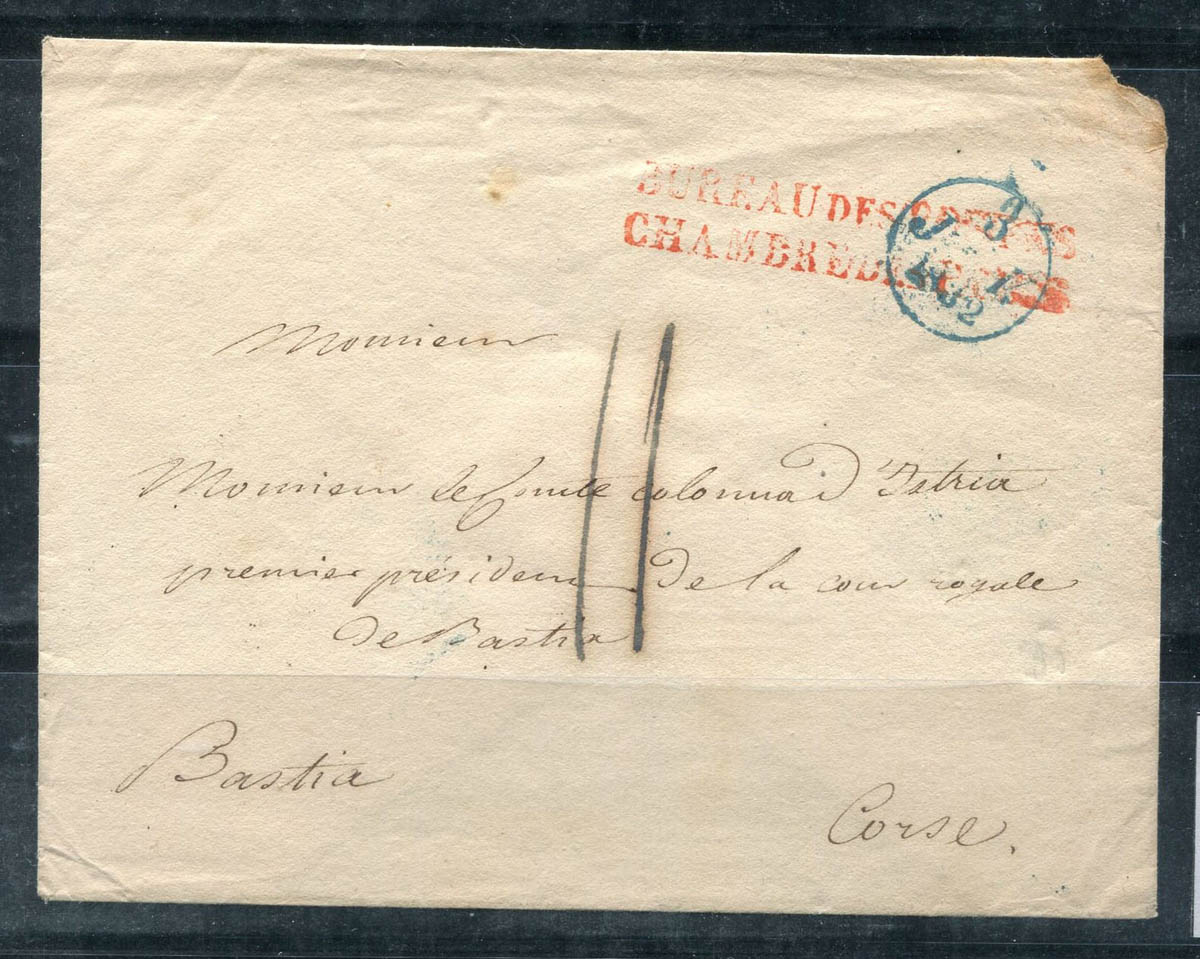 BUREAU DES
CHAMBRE DE
3
1832
Monsieur
11
Monsieur le Comte colonna d'Istria
premier président de la cour royale
de Bastia
Bastia
Corse.